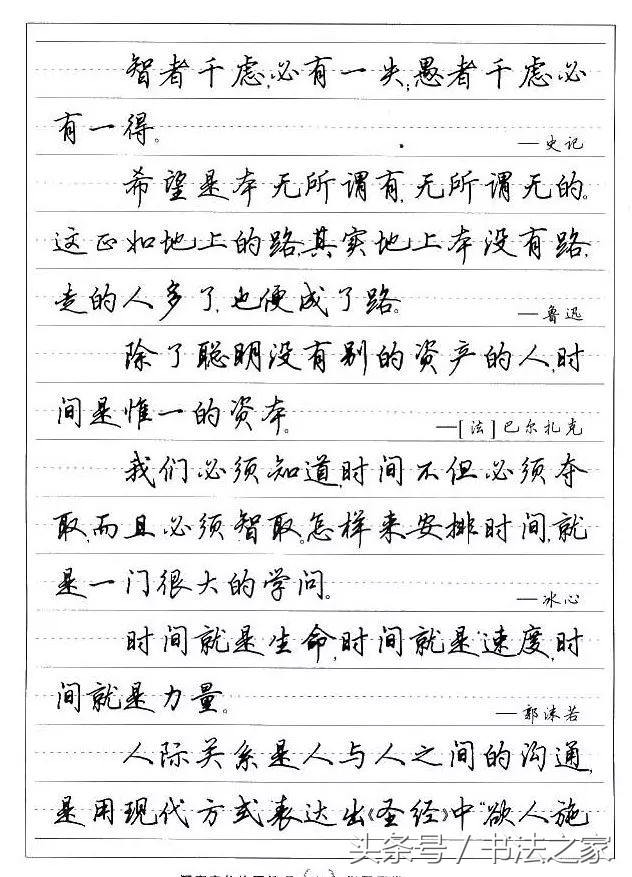 智者千虑,必有一失;愚者千虑必
有一得。
—史记
希望是本无所谓有,无所谓无的。
这正如地上的路,其实地上本没有路,
走的人多了,也便成了路。
—鲁迅
除了聪明没有别的资产的人,时
间是惟一的资本。
—[法]巴尔扎克
我们必须知道,时间不但必须夺
取,而且必须智取。怎样来安排时间,就
是一门很大的学问。
—冰心
时间就是生命,时间就是速度,时
间就是力量。
—郭沫若
人际关系是人与人之间的沟通,
是用现代方式表达出《圣经》中“欲人施
头条号/书法之家